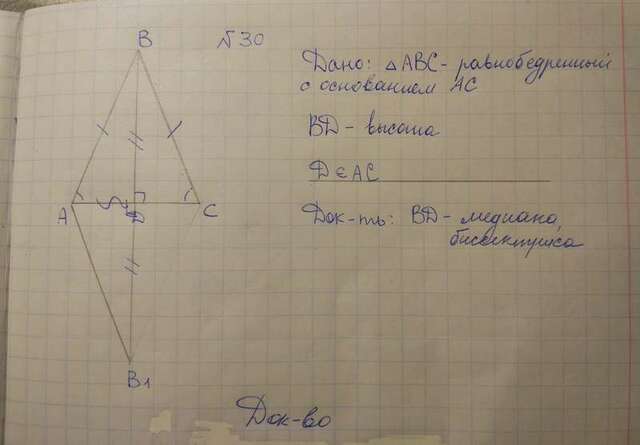 №30
B
A
D
C
B1
Дано: △ABC - равнобедренный
с основанием AC
BD - высота
D∈AC
Док-ть: BD - медиана,
биссектриса
Док-во